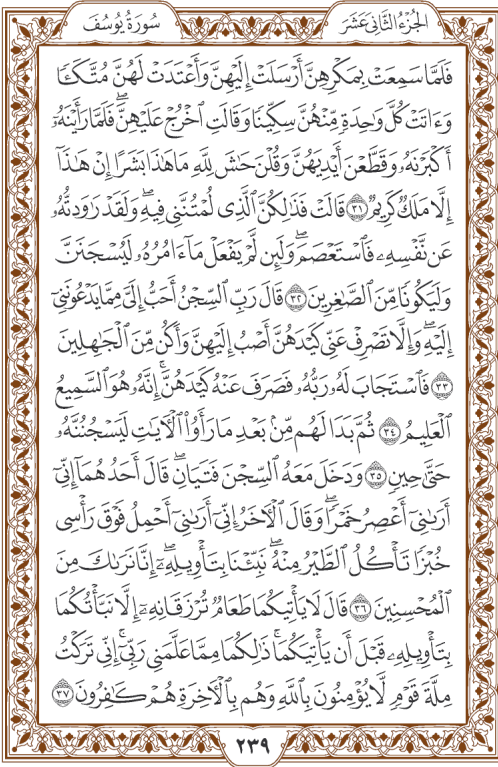 الجُزْءُ الثَّانِى عَشَرَ
سُورَةُ يُوسُفَ
فَلَمَّا سَمِعَتْ بِمَكْرِهِنَّ أَرْسَلَتْ إِلَيْهِنَّ وَأَعْتَدَتْ لَهُنَّ مُتَّكَـًٔا
وَءَاتَتْ كُلَّ وَٰحِدَةٍ مِّنْهُنَّ سِكِّينًا وَقَالَتِ ٱخْرُجْ عَلَيْهِنَّ ۖ فَلَمَّا رَأَيْنَهُۥٓ
أَكْبَرْنَهُۥ وَقَطَّعْنَ أَيْدِيَهُنَّ وَقُلْنَ حَٰشَ لِلَّهِ مَا هَٰذَا بَشَرًا إِنْ هَٰذَآ
إِلَّا مَلَكٌ كَرِيمٌ ٣١ قَالَتْ فَذَٰلِكُنَّ ٱلَّذِى لُمْتُنَّنِى فِيهِ ۖ وَلَقَدْ رَٰوَدتُّهُۥ
عَن نَّفْسِهِۦ فَٱسْتَعْصَمَ ۖ وَلَئِن لَّمْ يَفْعَلْ مَآ ءَامُرُهُۥ لَيُسْجَنَنَّ
وَلَيَكُونًا مِّنَ ٱلصَّٰغِرِينَ ٣٢ قَالَ رَبِّ ٱلسِّجْنُ أَحَبُّ إِلَىَّ مِمَّا يَدْعُونَنِىٓ
إِلَيْهِ ۖ وَإِلَّا تَصْرِفْ عَنِّى كَيْدَهُنَّ أَصْبُ إِلَيْهِنَّ وَأَكُن مِّنَ ٱلْجَٰهِلِينَ
٣٣ فَٱسْتَجَابَ لَهُۥ رَبُّهُۥ فَصَرَفَ عَنْهُ كَيْدَهُنَّ ۚ إِنَّهُۥ هُوَ ٱلسَّمِيعُ
ٱلْعَلِيمُ ٣٤ ثُمَّ بَدَا لَهُم مِّنۢ بَعْدِ مَا رَأَوُا۟ ٱلْـَٔايَٰتِ لَيَسْجُنُنَّهُۥ
حَتَّىٰ حِينٍ ٣٥ وَدَخَلَ مَعَهُ ٱلسِّجْنَ فَتَيَانِ ۖ قَالَ أَحَدُهُمَآ إِنِّىٓ
أَرَىٰنِىٓ أَعْصِرُ خَمْرًا ۖ وَقَالَ ٱلْـَٔاخَرُ إِنِّىٓ أَرَىٰنِىٓ أَحْمِلُ فَوْقَ رَأْسِى
خُبْزًا تَأْكُلُ ٱلطَّيْرُ مِنْهُ ۖ نَبِّئْنَا بِتَأْوِيلِهِۦٓ ۖ إِنَّا نَرَىٰكَ مِنَ
ٱلْمُحْسِنِينَ ٣٦ قَالَ لَا يَأْتِيكُمَا طَعَامٌ تُرْزَقَانِهِۦٓ إِلَّا نَبَّأْتُكُمَا
بِتَأْوِيلِهِۦ قَبْلَ أَن يَأْتِيَكُمَا ۚ ذَٰلِكُمَا مِمَّا عَلَّمَنِى رَبِّىٓ ۚ إِنِّى تَرَكْتُ
مِلَّةَ قَوْمٍ لَّا يُؤْمِنُونَ بِٱللَّهِ وَهُم بِٱلْـَٔاخِرَةِ هُمْ كَٰفِرُونَ ٣٧
٢٣٩